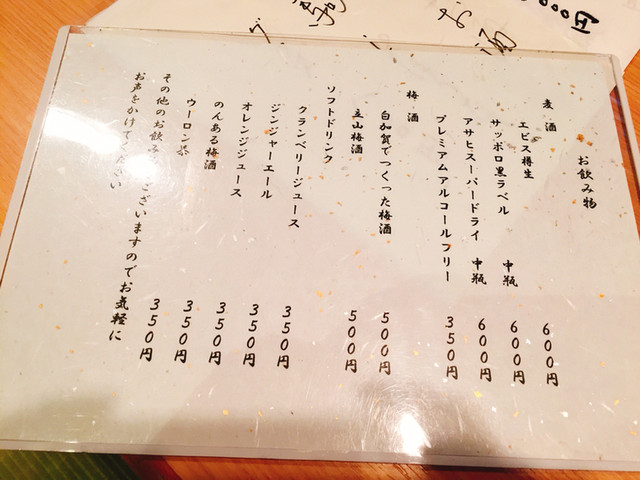 お飲み物
麦酒
エビス樽生 600円
サッポロ黒ラベル 中瓶 600円
アサヒスーパードライ 中瓶 600円
プレミアムアルコールフリー 350円
梅酒
白加賀でつくった梅酒 500円
立山梅酒 500円
ソフトドリンク
クランベリージュース 350円
ジンジャーエール 350円
オレンジジュース 350円
のんある梅酒 350円
ウーロン茶 350円
その他のお飲み ございますのでお気軽に 350円
お声をかけてください
お酒